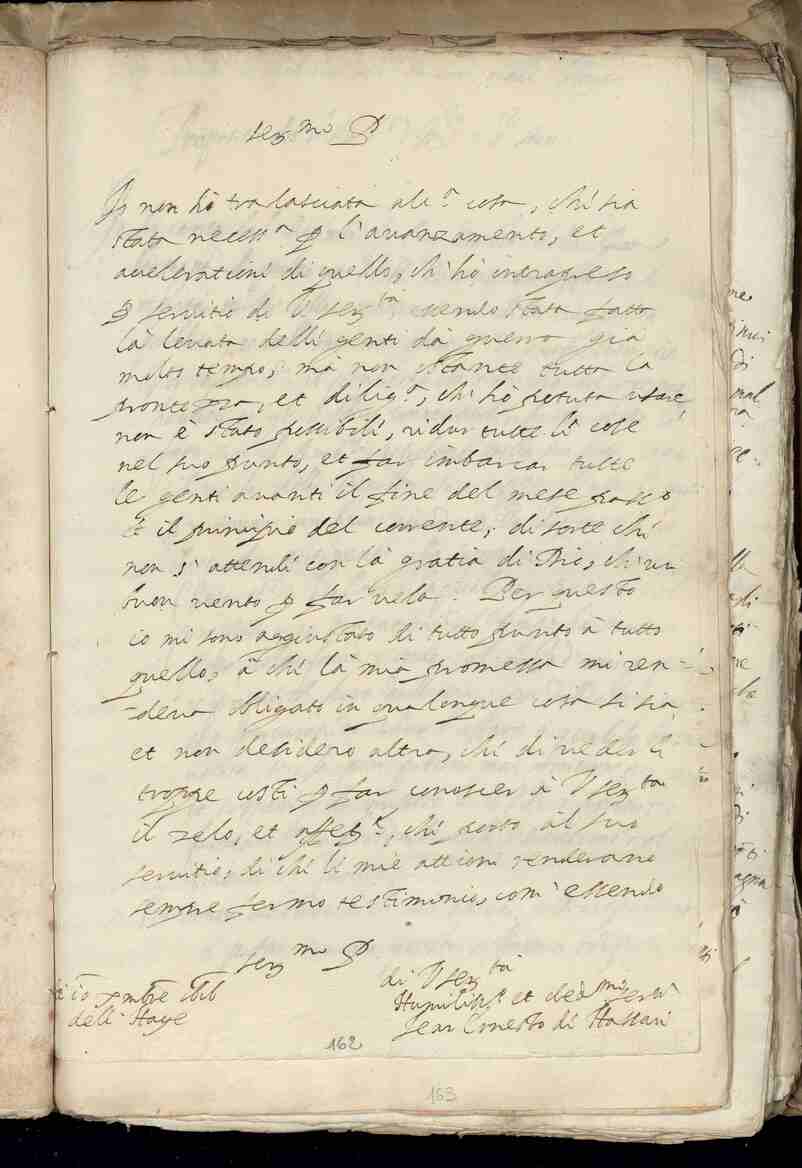 Ser.mo P.
Io non hò tralasciata alc.a cosa, chi sia
stata necess.a p l'avanzamento, et
accelerationi di quello, ch'hò intrapreso
p servitio di V Ser.ta essendo stata fatta
là levata delli genti dà guerra già
molto tempo; mà non ostante tutta la
prontezza, et dilig.a, ch'hò potuta usare,
non è stato possibili, ridur tutte li cose
nel suo punto, et far imbarcar tutte
le genti avanti il fine del mese pass.o
et il principio del corrente; di sorte chi
non s'attendi con là gratia di Dio, ch'un
buon vento p far vela. Per questo
io mi sono aggiustato di tutto punto à tutto
quello, à chi là mia promessa mi ren-
deva obligato in qualonque cosa si sia,
et non desidero altro, chi di veder li
troppe costi p far conoscer à V Ser.ta
il zelo, et affett.e, chi porto al suo
servitio, di chi li mie attioni renderano
sempre fermo testimonio, com'essendo
Ser.mo P.
di V Ser.ta
Humiliss.o et ded.mo serv.
Jean Ernesto di Nassau
delli Haye
162
163